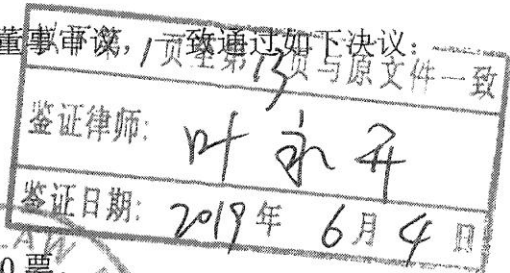 董事审议，一致通过如下决议：
第1页至第13页与原文件一致
鉴证律师：叶永开
鉴证日期：2019年6月4日
LAW
0 票